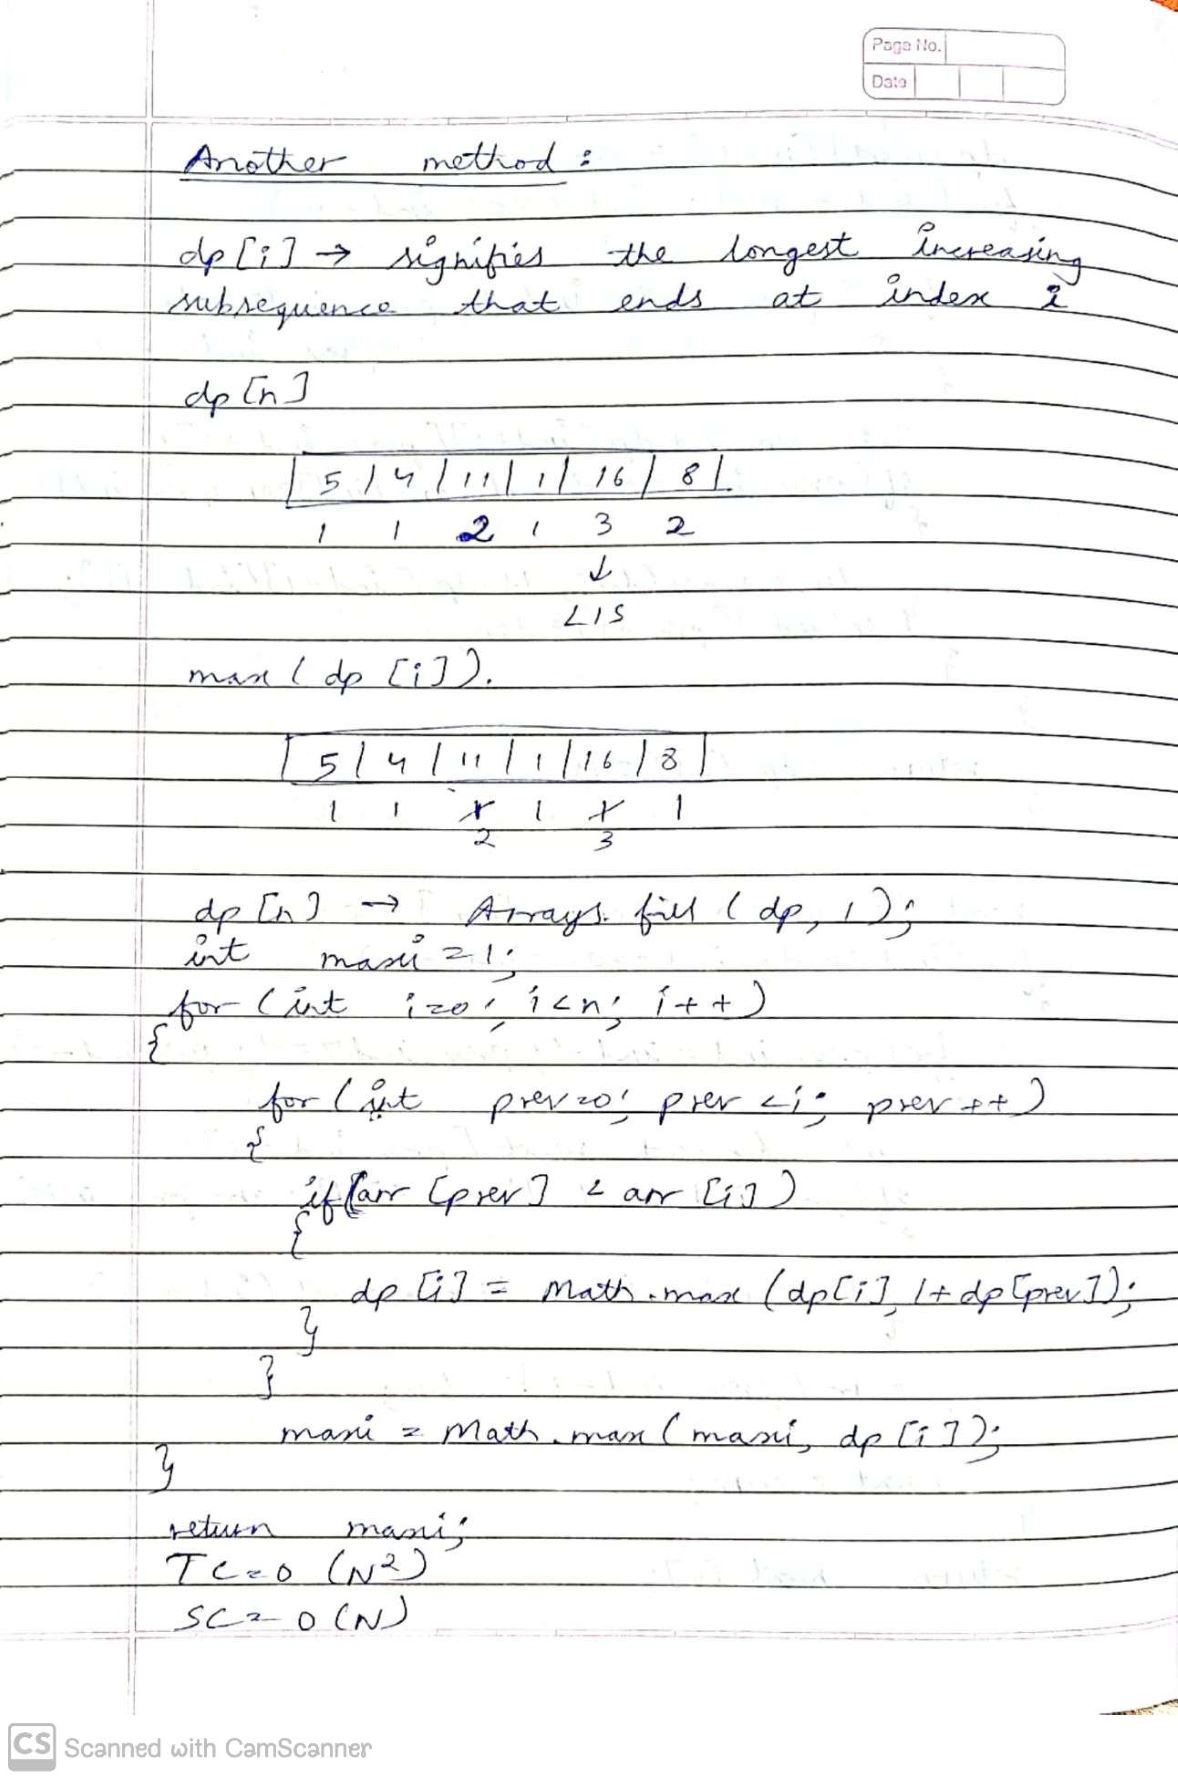 Page No.
Date
Another method :
dp [i] → signifies the longest increasing
subsequence that ends at index i
dp [n]
5 | 4 | 11 | 1 | 16 | 8
1 1 2 1 3 2
↓
LIS
max ( dp [i]).
5 | 4 | 11 | 1 | 16 | 8
1 1 1 1 1 1
2 3
dp [n] → Arrays. fill ( dp, 1);
int maxi = 1;
for ( int i=0; i<n; i++)
{
for ( int prev=0; prev <i; prev ++)
{
if (arr [prev] < arr [i])
{
dp [i] = Math.max (dp[i], 1+ dp [prev]);
}
}
maxi = Math.max ( maxi, dp [i]);
}
return maxi;
TC = O (N²)
SC = O (N)
CS Scanned with CamScanner